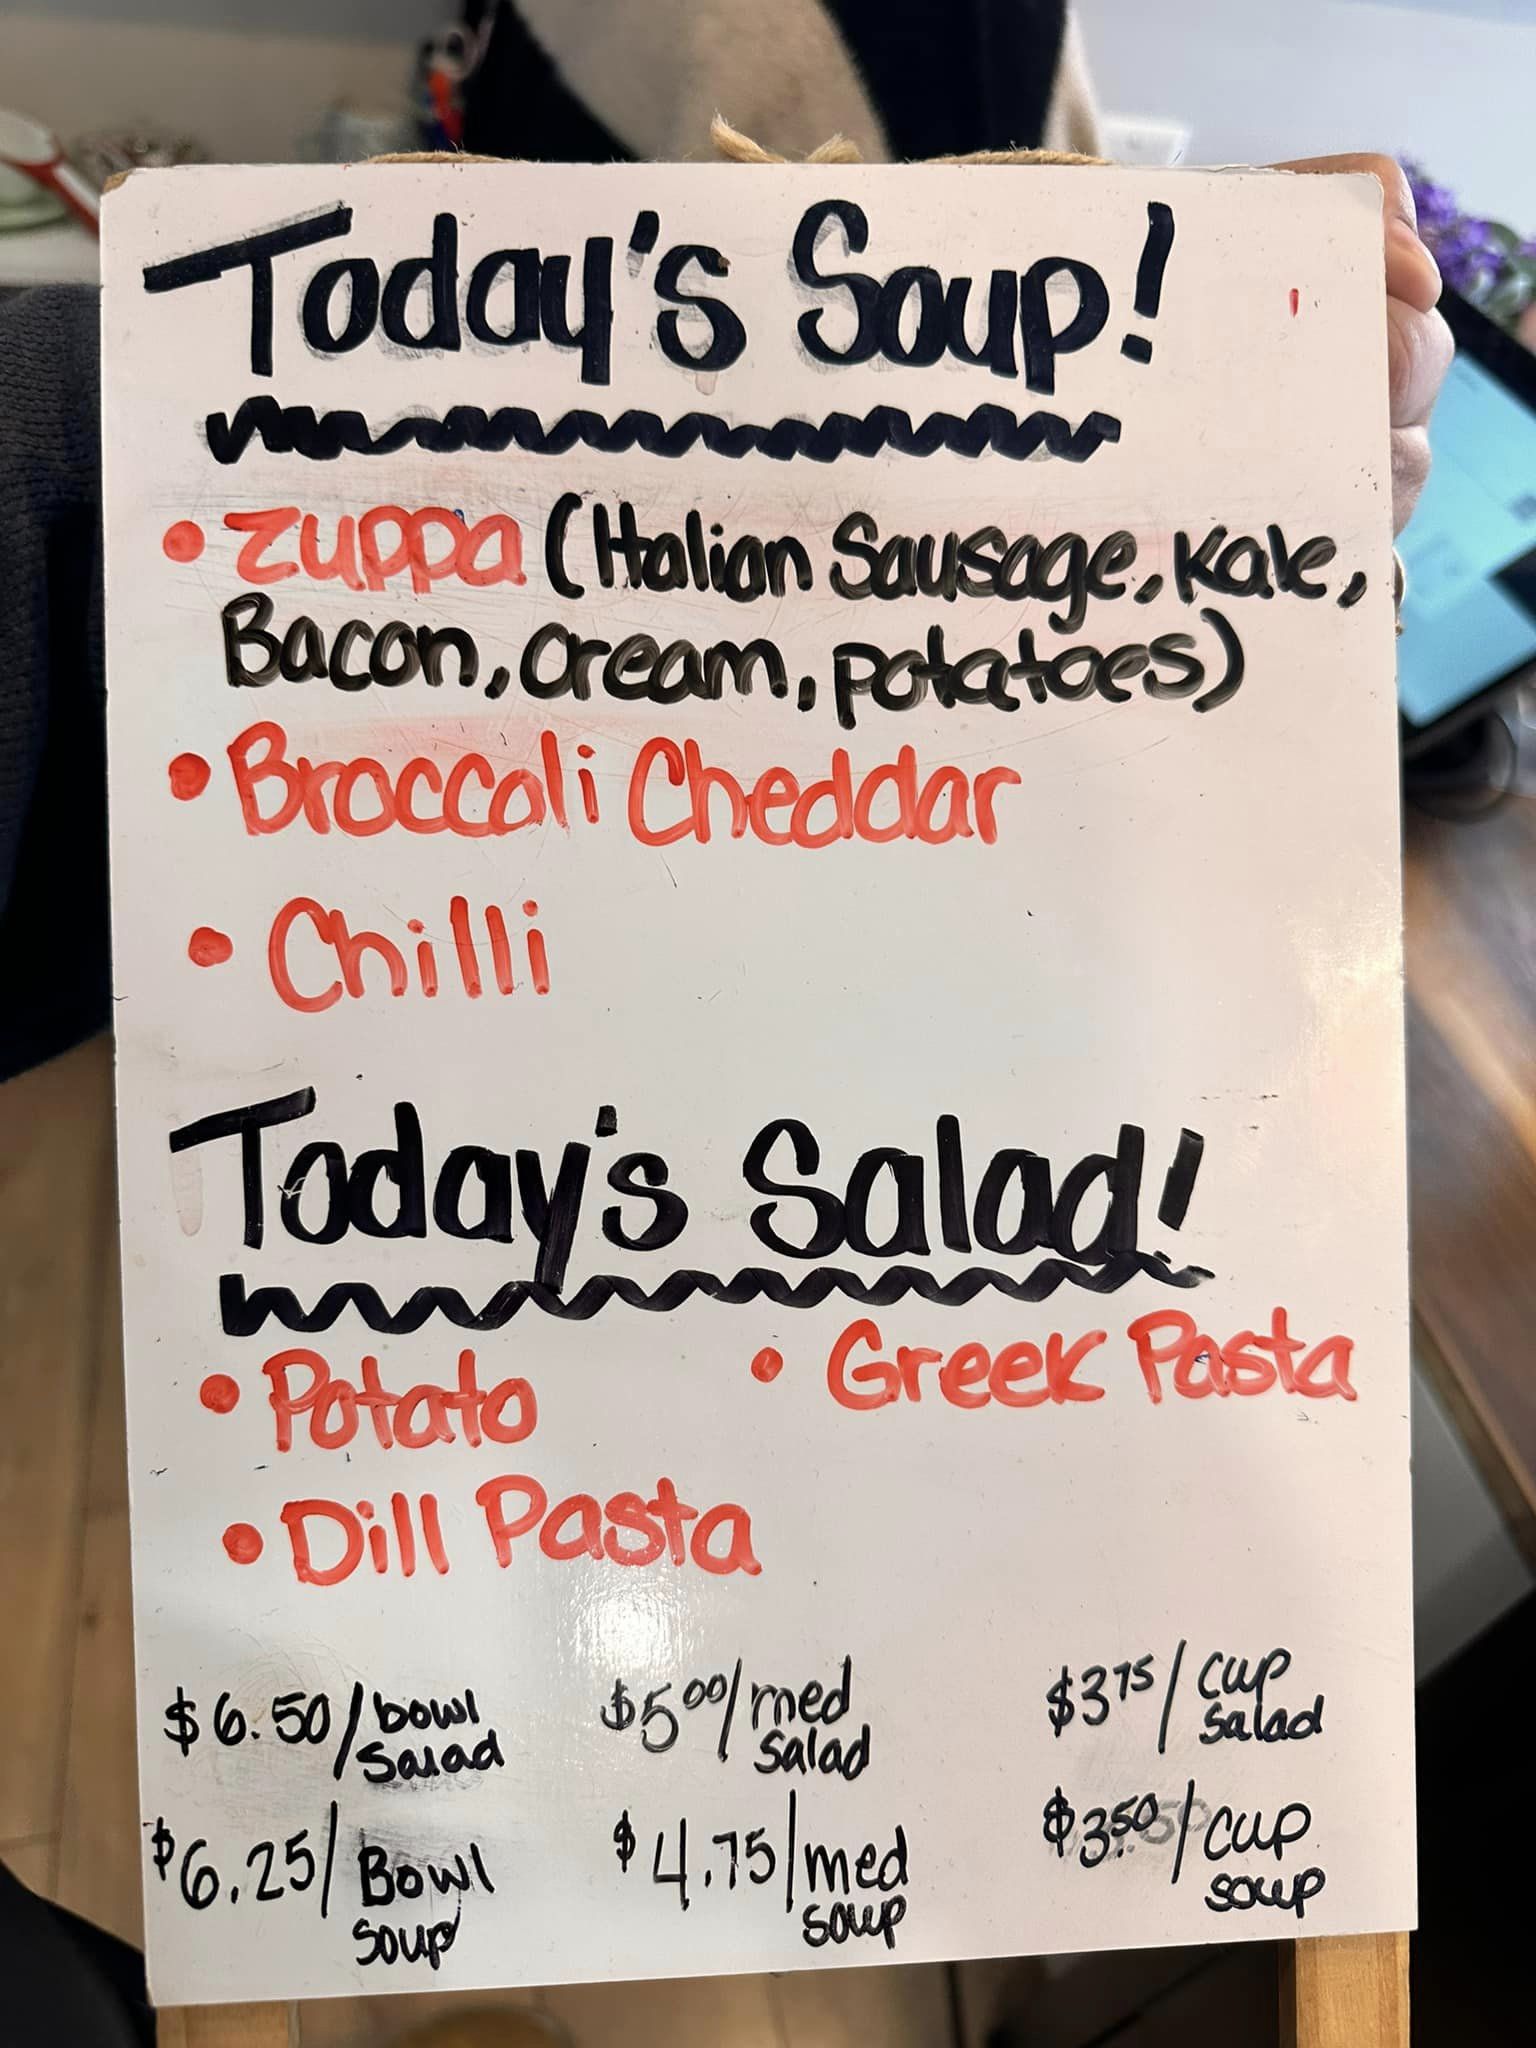 Today's Soup!
• Zuppa (Italian Sausage, Kale,
Bacon, cream, potatoes)
• Broccoli Cheddar
• Chilli
Today's Salad!
• Potato
• Greek Pasta
• Dill Pasta
$6.50/bowl salad
$5.00/med salad
$3.75/cup salad
$6.25/Bowl soup
$4.75/med soup
$3.50/cup soup